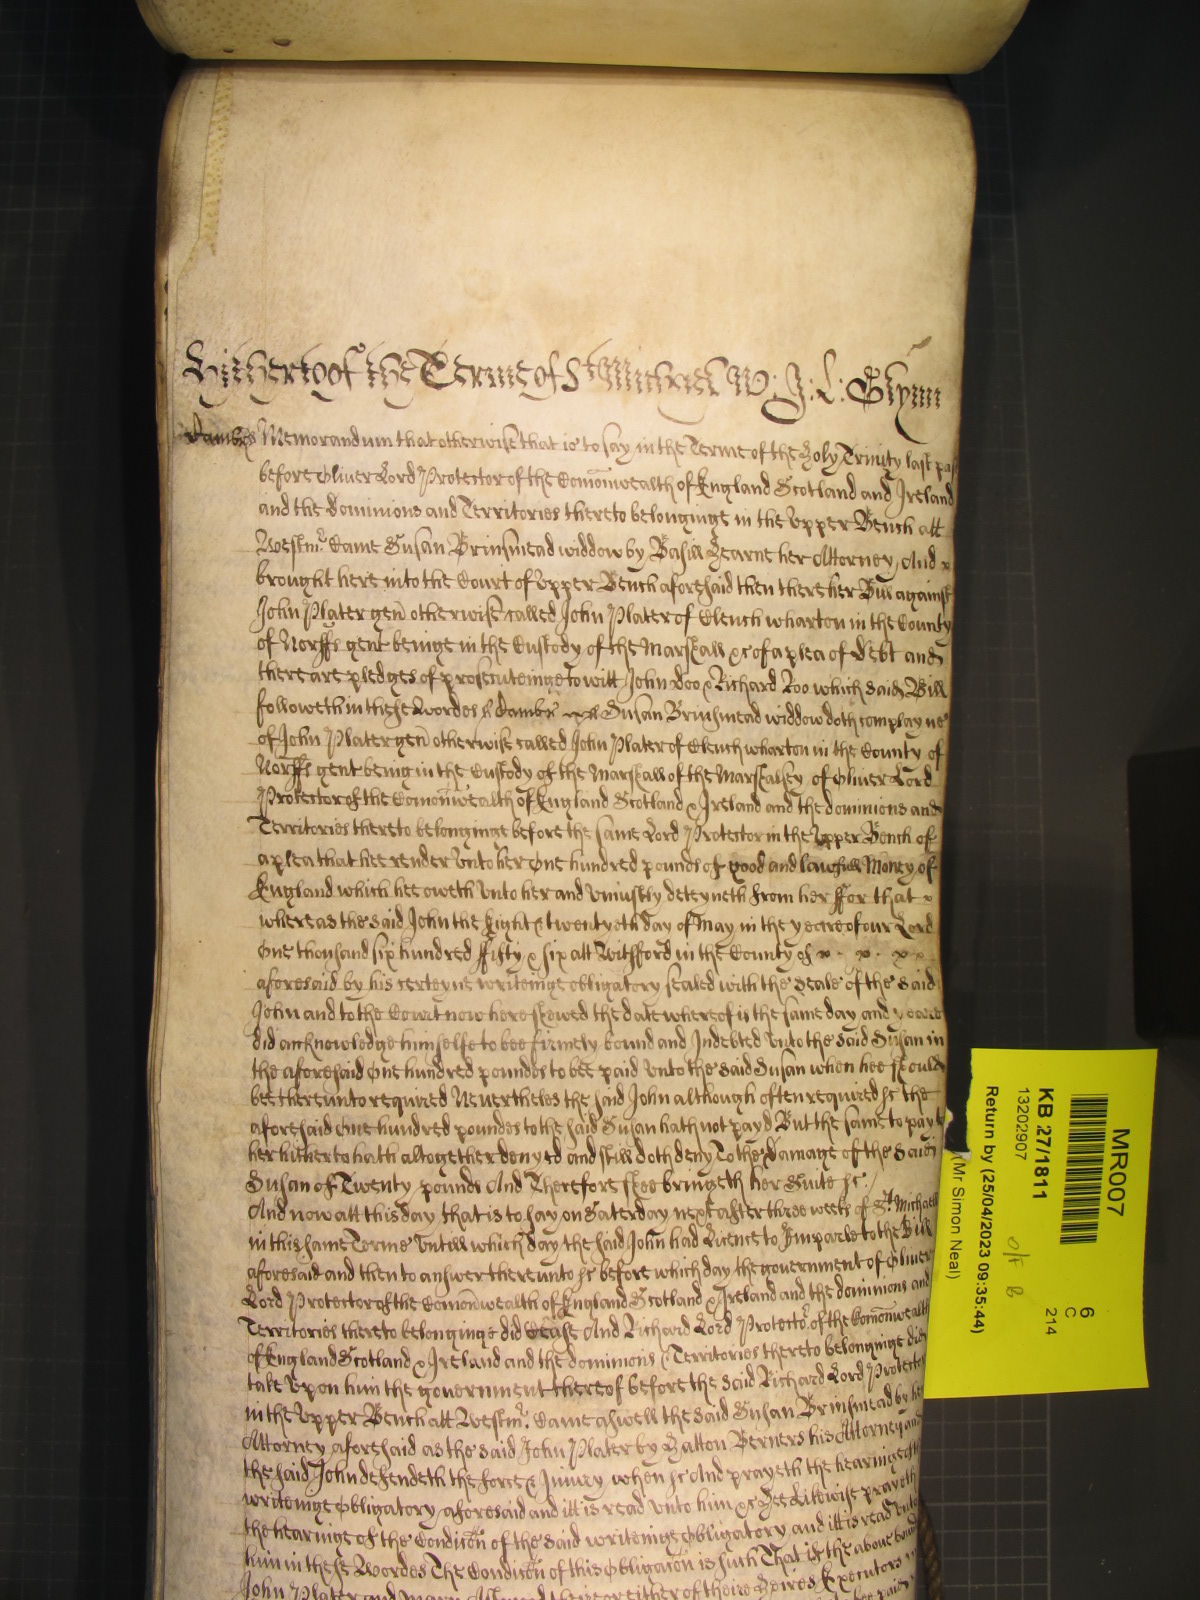 Hitherto of the Terme of St Michael W: J: L: Glynn
Cambr ss Memorandum that otherwise that is to say in the Terme of the Holy Trinity last past
before Oliver Lord Protector of the Comonwealth of England Scotland and Ireland
and the Dominions and Territories thereto belonginge in the Upper Bench att
Westmr. Came Susan Brinsmead widdow by Basill Hearne her Attorney, And x
brought here into the Court of Upper Bench aforesaid then there her Bill against
John Plater gen otherwise called John Plater of Clench wharton in the County
of Norff gent beinge in the Custody of the Marshall &c of a plea of Debt and
there are pledges of prosecuteinge to witt John Doo & Richard Roo which said Bill
followeth in these wordes ss Cambr ss Susan Brinsmead widdow doth complayne
of John Plater gen otherwise called John Plater of Clench wharton in the County of
Norff gent being in the Custody of the Marshall of the Marshalsey of Oliver Lord
Protector of the Comonwealth of England Scotland & Ireland and the dominions and
Territories thereto belonginge before the same Lord Protector in the Upper Bench of
a plea that hee render Unto her One hundred pounds of good and lawfull Money of
England which hee oweth Unto her and Uniustly deteyneth from her ffor that x
whereas the said John the Eight & twentyeth day of May in the yeare of our Lord
One thousand six hundred ffifty & six att Witsford in the County of x . x . x x
aforesaid by his certeyne writeinge obligatory sealed with the Seale of the said
John and to the Court now here shewed the date whereof is the same day and yeare
did acknowledge himselfe to bee firmely bound and Indebted Unto the said Susan in
the aforesaid One hundred poundes to bee paid Unto the said Susan when hee should
bee thereunto required Nevertheles the said John although often required &c the
aforesaid One hundred poundes to the said Susan hath not payd But the same to pay to
her hitherto hath altogether denyed and still doth deny To the Damage of the said
Susan of Twenty pounds And Therefore shee bringeth her Suite &c.
And now att this day that is to say on Saterday next after three weeks of St. Michaell
in this same Terme Untill which day the said John had Licence to Imparle to the Bill
aforesaid and then to answer thereunto &c before which day the government of Oliver
Lord Protector of the Comonwealth of England Scotland & Ireland and the dominions and
Territories thereto belonginge did cease And Richard Lord Protector of the Comonwealth
of England Scotland & Ireland and the dominions & Territories thereto belonginge did
take Upon him the government thereof before the said Richard Lord Protector
in the Upper Bench att Westmr. Came aswell the said Susan Brinsmead by her
Attorney aforesaid as the said John Plater by Hatton Berners his Attorney and
the said John defendeth the force & Iniury when &c And prayeth the hearinge of the
writeinge Obligatory aforesaid and itt is read Unto him &c Hee Likewise prayeth
the hearinge of the Condicon of the said writeinge Obligatory and itt is read Unto
him in these Wordes The Condicon of this Obligacon is such That if the above bound
John Plater and either of theire Heires Executors
MR007
KB 27/1811
13202907
Return by (25/04/2023 09:35:44)
(Mr Simon Neal)
6
C
214